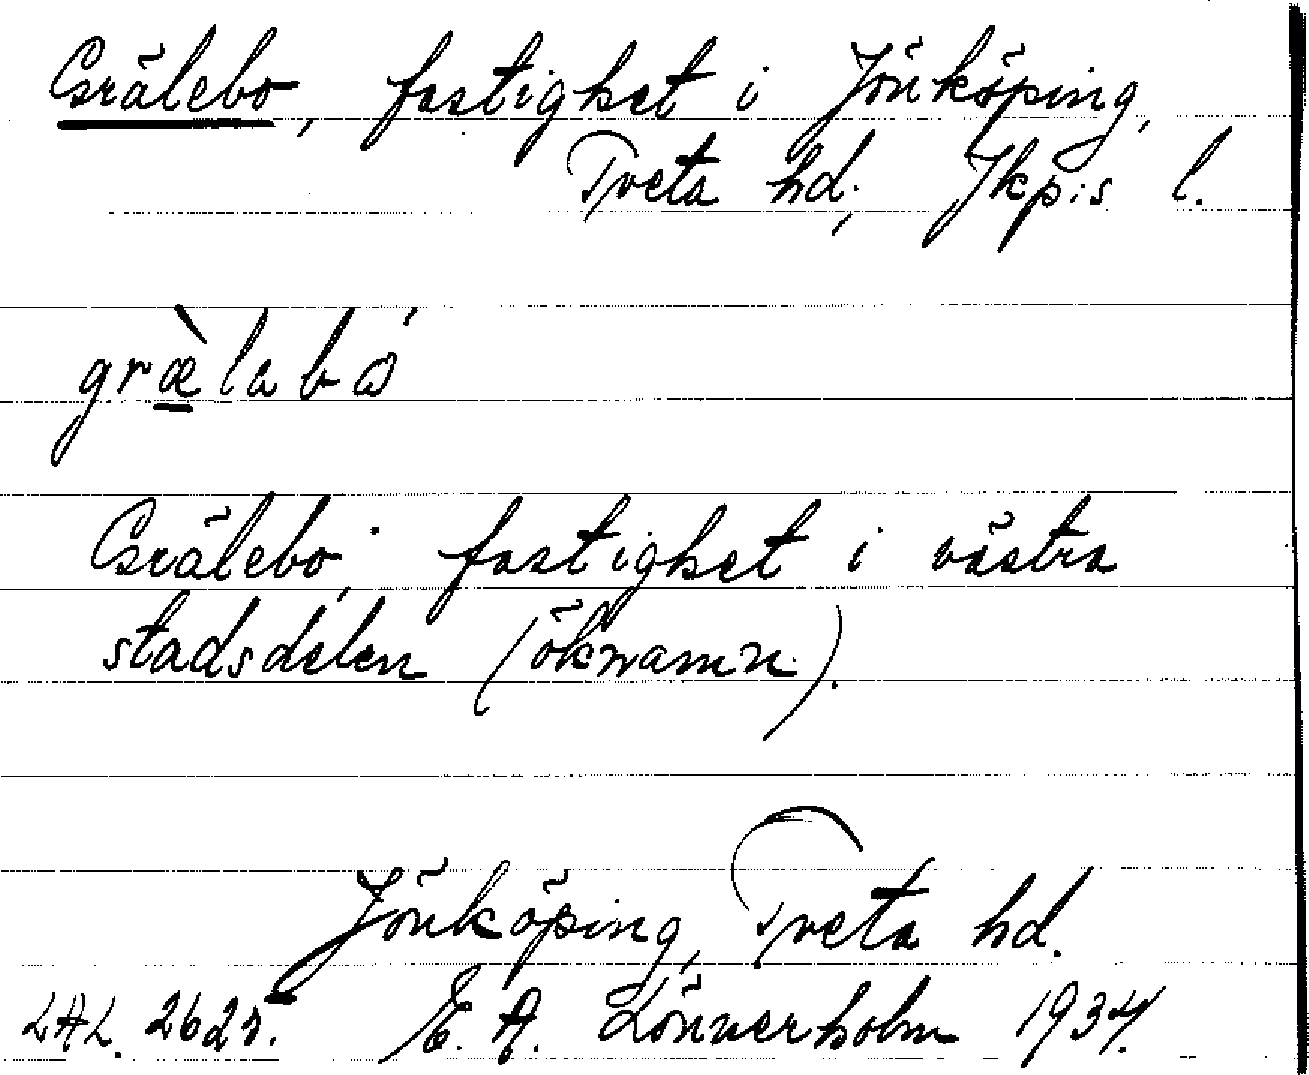 Grälebo, fastighet i Jönköping,
Tveta hd; Jkp:s l.
græ̀labɷ́
Grälebo, fastighet i västra
stadsdelen (öknamn).
Jönköping, Tveta hd.
LAL. 2625. E. A. Lönnerholm 1934.